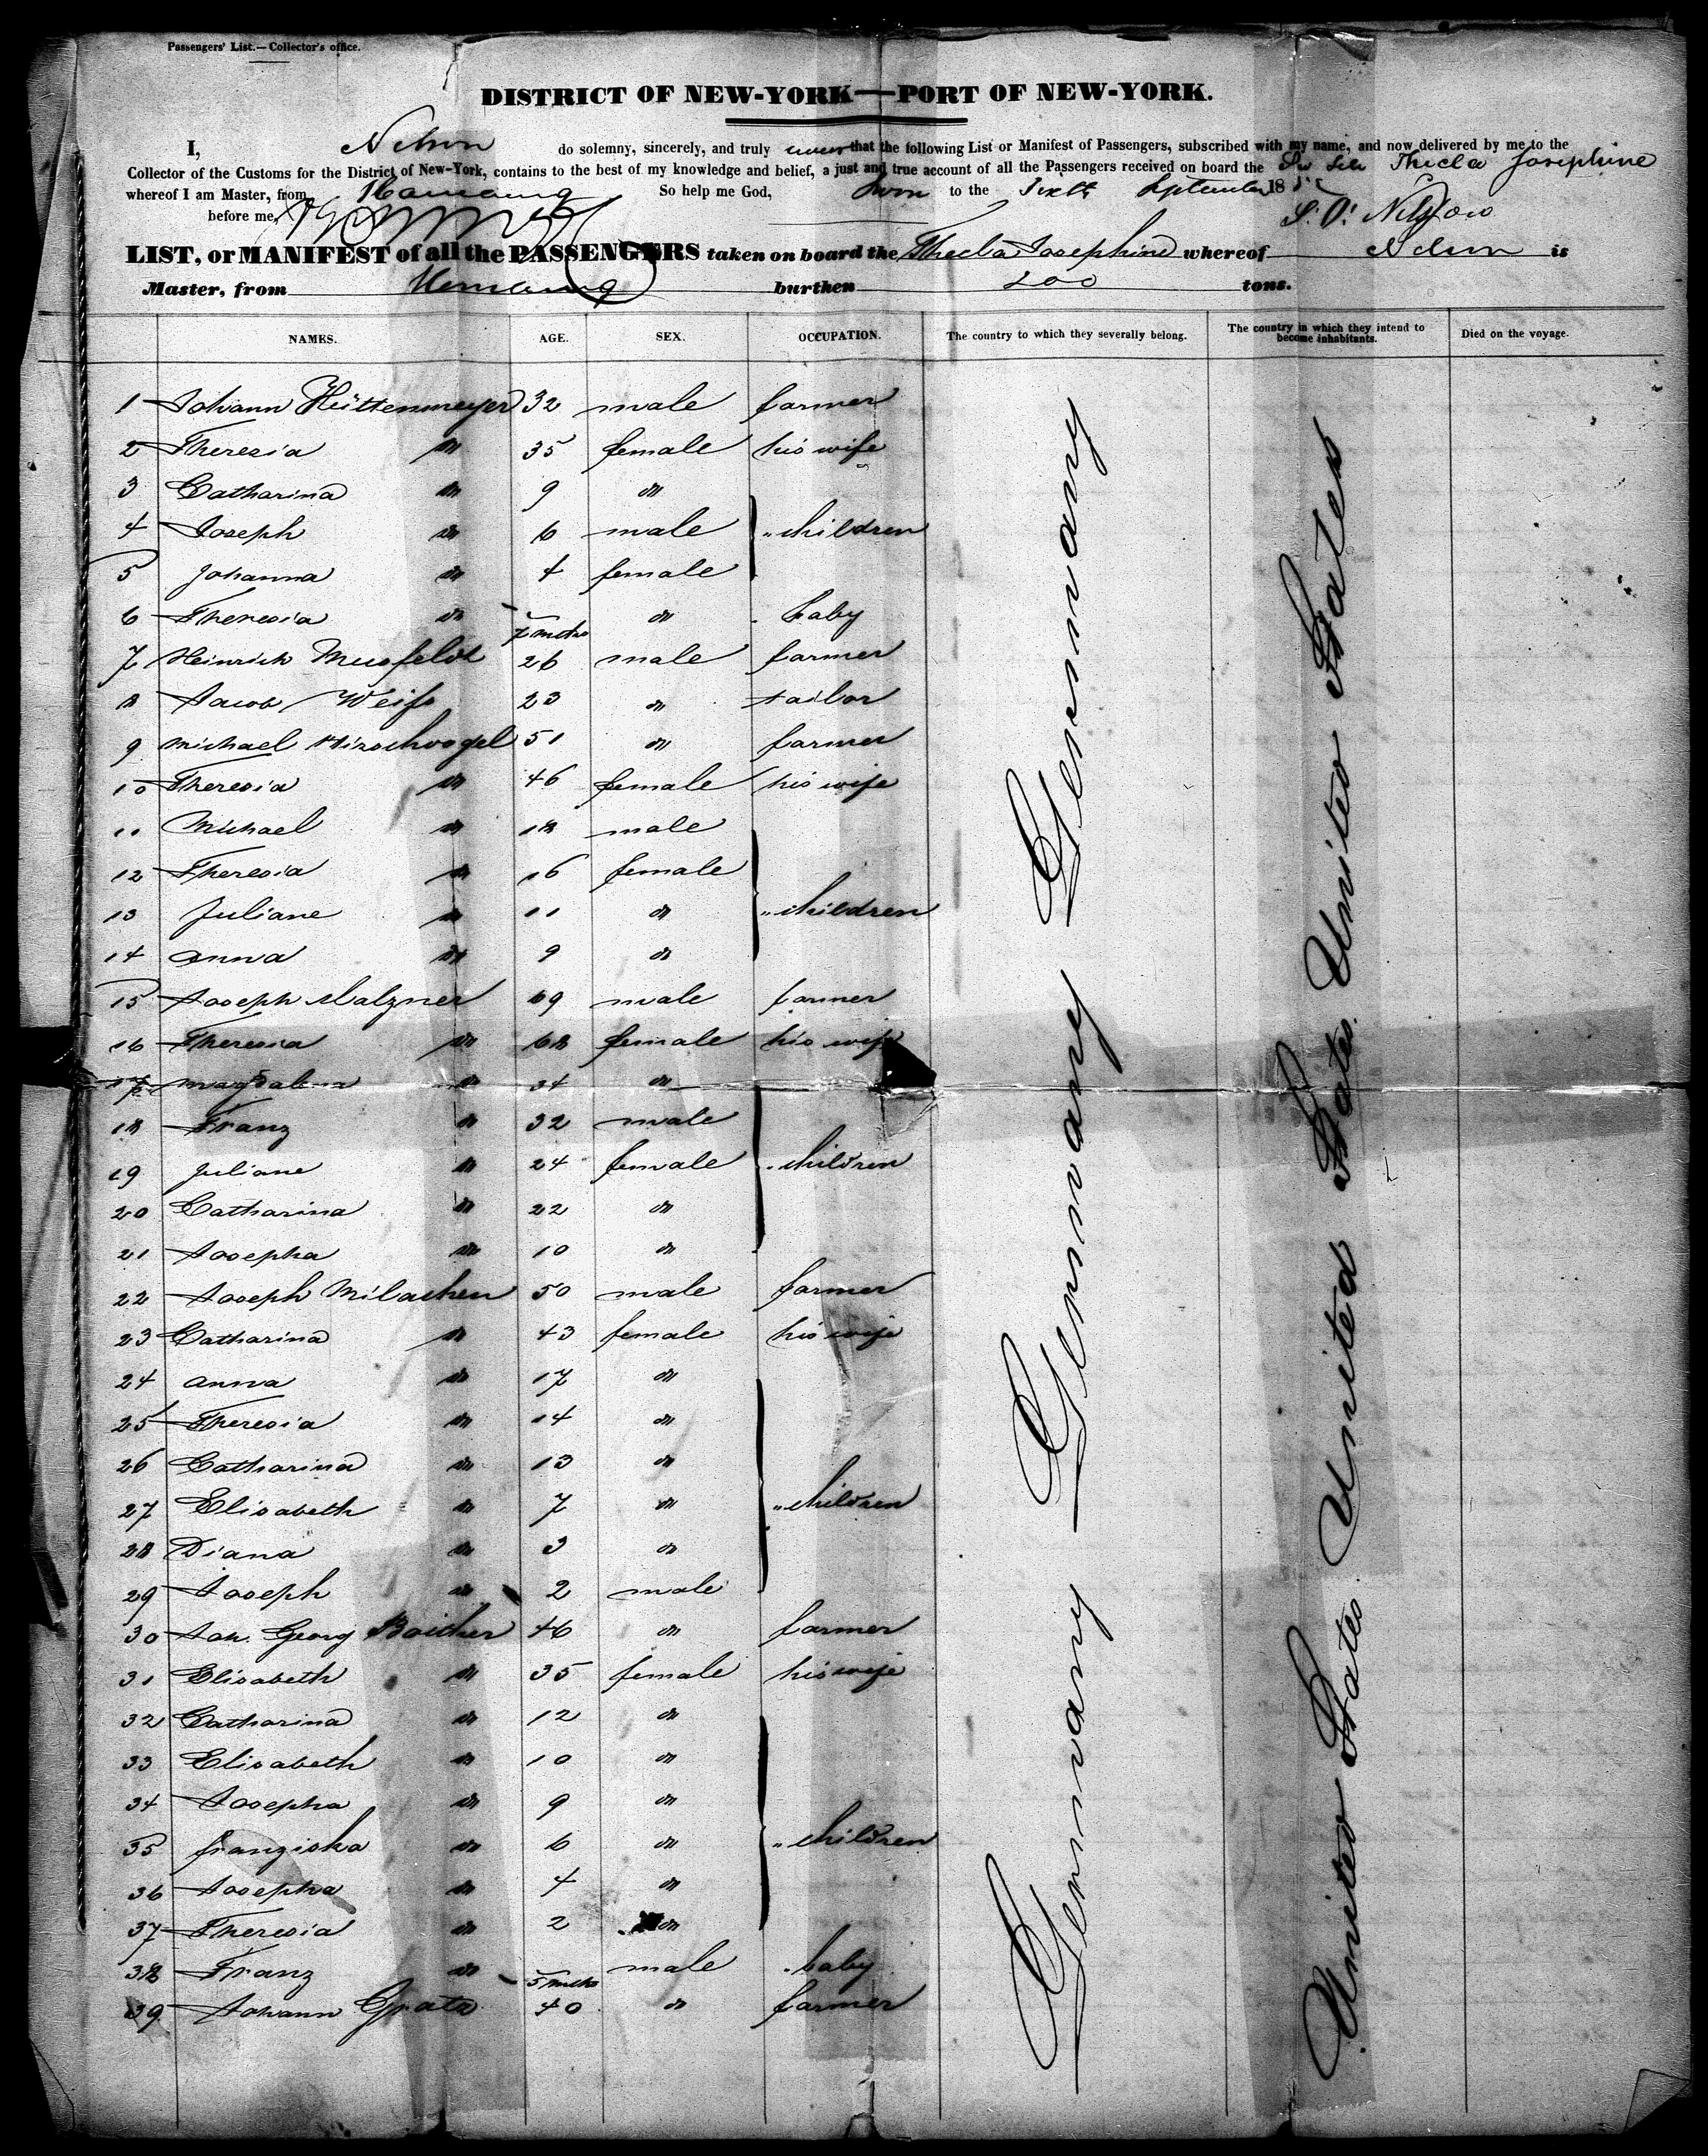 Passengers' List.—Collector's office.
DISTRICT OF NEW-YORK—PORT OF NEW-YORK.
I, Nelson do solemny, sincerely, and truly swear that the following List or Manifest of Passengers, subscribed with my name, and now delivered by me to the
Collector of the Customs for the District of New-York, contains to the best of my knowledge and belief, a just and true account of all the Passengers received on board the Thecla Josephine
whereof I am Master, from Hamburg So help me God, Sworn to the Sixth September 18
before me,
LIST, or MANIFEST of all the PASSENGERS taken on board the Thecla Josephine whereof Nelson is
Master, from Hamburg burthen 200 tons.
NAMES. AGE. SEX. OCCUPATION. The country to which they severally belong. The country in which they intend to become inhabitants. Died on the voyage.
1 Johann Hüttenmeyer 32 male farmer
2 Theresia do 35 female his wife
3 Catharina do 9 do
4 Joseph do 6 male children
5 Johanna do 4 female
6 Theresia do 7 mths do baby
7 Heinrich Musfeldt 26 male farmer
8 Jacob Weiss 23 do tailor
9 Michael Hirschvogel 51 do farmer
10 Theresia do 46 female his wife
11 Michael do 18 male
12 Theresia do 16 female
13 Juliane do 11 do children
14 Anna do 9 do
15 Joseph Malzner 69 male farmer
16 Theresia do 68 female his wife
17 Magdalena do 34 do
18 Franz do 32 male
19 Juliane do 24 female children
20 Catharina do 22 do
21 Josepha do 10 do
22 Joseph Milachen 50 male farmer
23 Catharina do 43 female his wife
24 Anna do 17 do
25 Theresia do 14 do
26 Catharina do 13 do
27 Elisabeth do 7 do children
28 Diana do 3 do
29 Joseph do 2 male
30 Joh. Georg Boither 46 do farmer
31 Elisabeth do 35 female his wife
32 Catharina do 12 do
33 Elisabeth do 10 do
34 Josepha do 9 do
35 Franziska do 6 do children
36 Josepha do 4 do
37 Theresia do 2 do
38 Franz do 5 mths male baby
39 Johann Gratz 40 do farmer
Germany Germany Germany Germany
United States United States United States United States